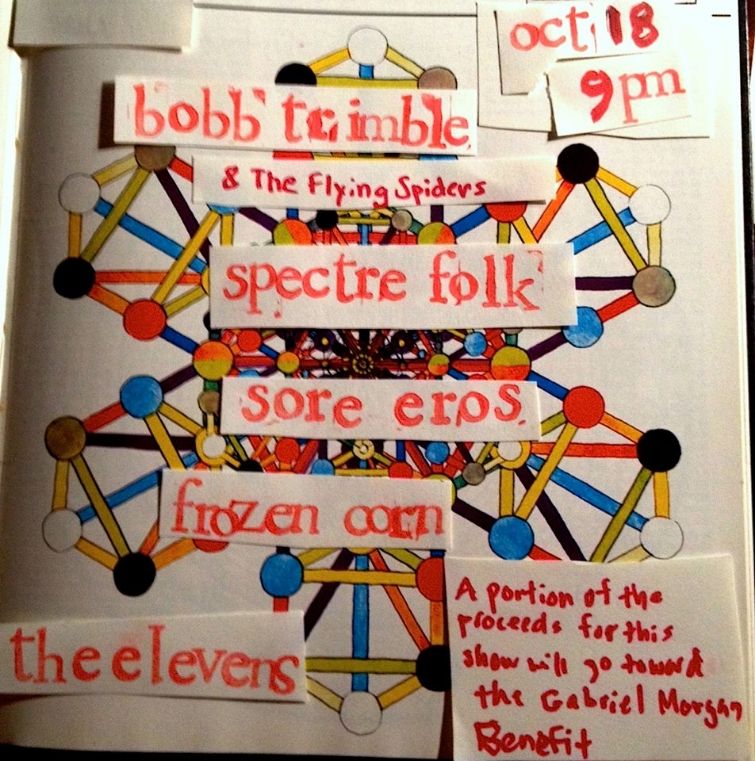 oct 18
9pm
bobb trimble
& The Flying Spiders
spectre folk
sore eros
frozen corn
the elevens
A portion of the
proceeds for this
show will go toward
the Gabriel Morgan
Benefit